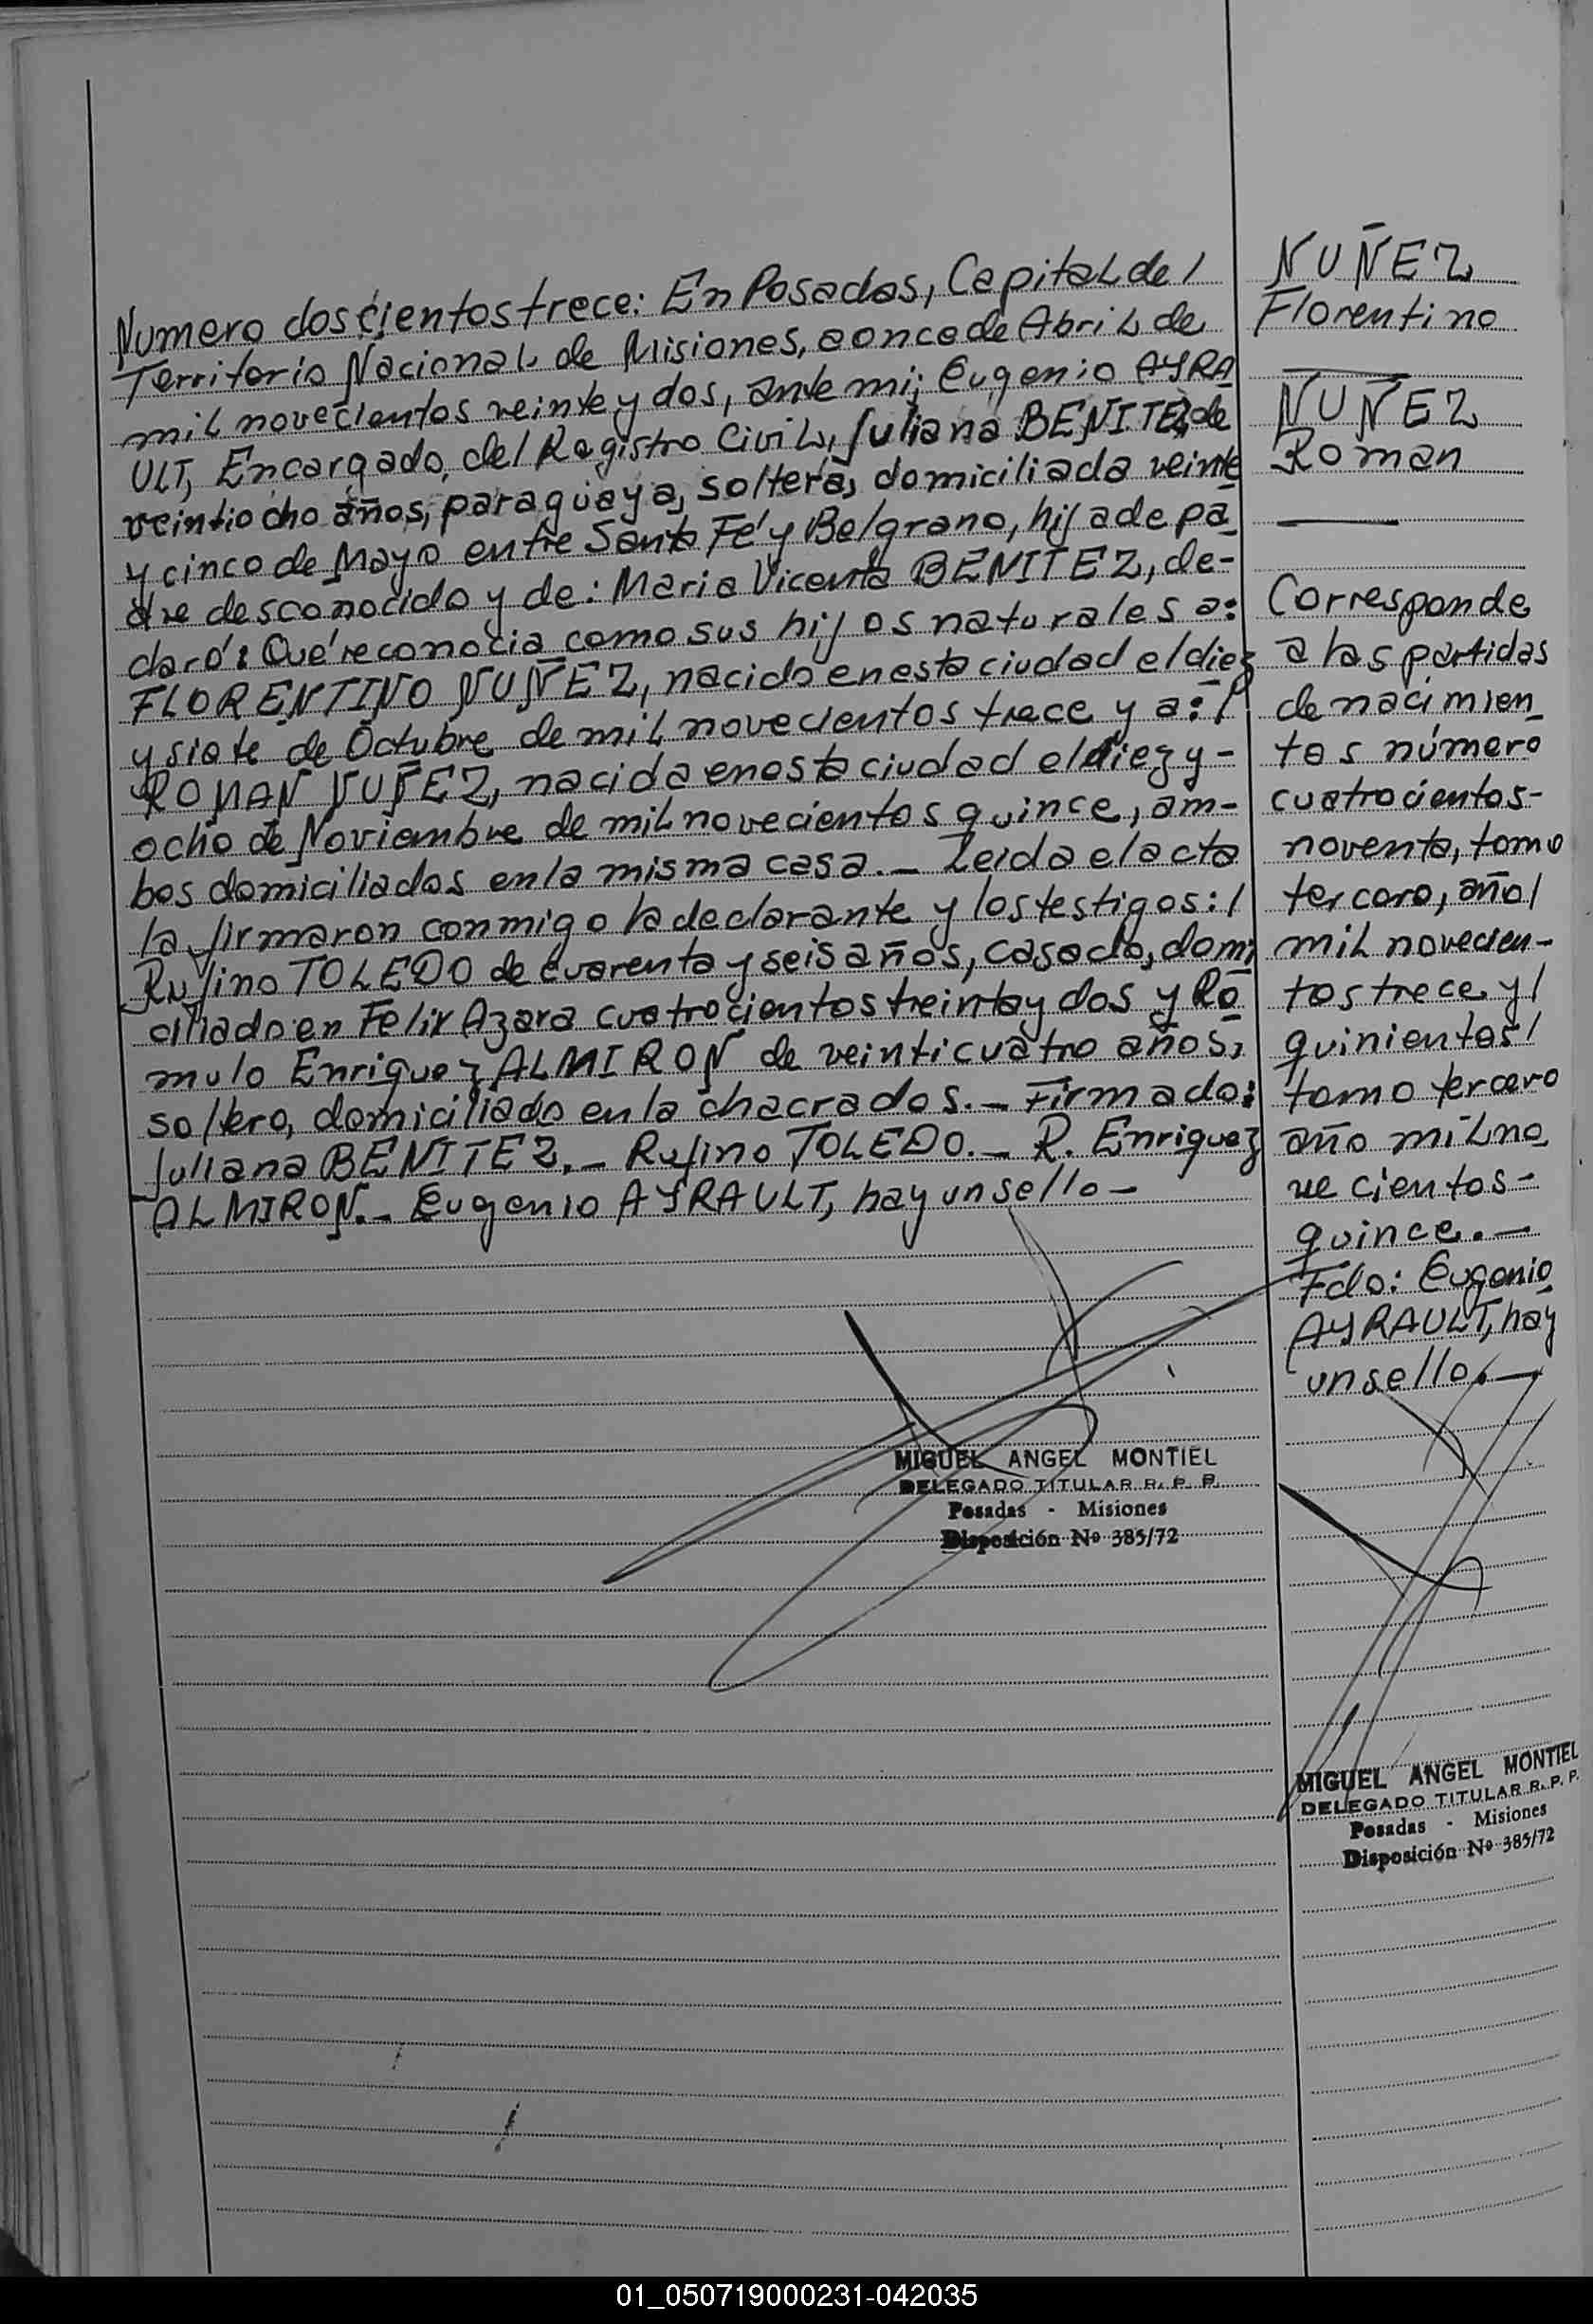 Numero doscientos trece: En Posadas, Capital del
Territorio Nacional de Misiones, a once de Abril de
mil novecientos veinte y dos, ante mi; Eugenio AYRA
ULT, Encargado del Registro Civil, Juliana BENITEZ, de
veintiocho años, paraguaya, soltera, domiciliada veinte
y cinco de Mayo entre Santa Fé y Belgrano, hija de pa
dre desconocido y de: Maria Vicenta BENITEZ, de-
claró: Qué reconocia como sus hijos naturales a:
FLORENTINO NUÑEZ, nacido en esta ciudad el diez
y siete de Octubre de mil novecientos trece y a: /
ROMAN NUÑEZ, nacida en esta ciudad el diez y -
ocho de Noviembre de mil novecientos quince, am-
bos domiciliados en la misma casa.- Leida el acta
la firmaron conmigo la declarante y los testigos: /
Rufino TOLEDO de cuarenta y seis años, casado, domi
ciliado en Felix Azara cuatrocientos treinta y dos y Ro
mulo Enriquez ALMIRON de veinticuatro años,
soltero, domiciliado en la chacra dos.- Firmado:
Juliana BENITEZ.- Rufino TOLEDO.- R. Enriquez
ALMIRON.- Eugenio AYRAULT, hay un sello -
MIGUEL ANGEL MONTIEL
DELEGADO TITULAR R. P. P.
Posadas - Misiones
Disposición Nº 385/72
NUÑEZ
Florentino
NUÑEZ
Roman
Corresponde
a las partidas
de nacimien
tos número
cuatrocientos-
noventa, tomo
tercero, año /
mil novecien-
tos trece y /
quinientos /
tomo tercero
año mil no
ve cientos -
quince.-
Fdo: Eugenio
AYRAULT, hay
un sello.-
MIGUEL ANGEL MONTIEL
DELEGADO TITULAR R. P. P.
Posadas - Misiones
Disposición Nº 385/72
01_050719000231-042035